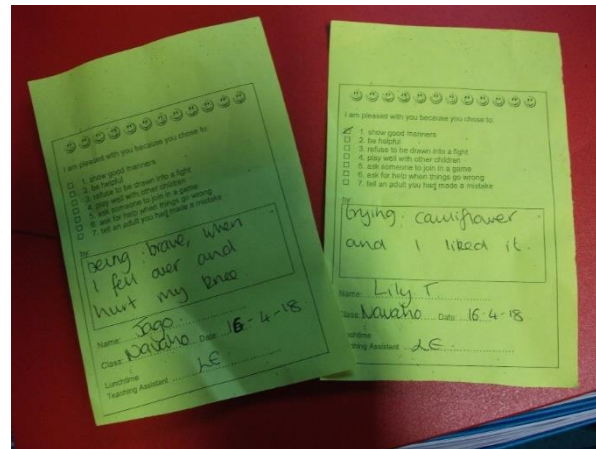 I am pleased with you because you chose to:
1. show good manners
2. be helpful
3. refuse to be drawn into a fight
4. play well with other children
5. ask someone to join in a game
6. ask for help when things go wrong
7. tell an adult you had made a mistake
by:
being brave, when
I fell over and
hurt my knee
Name: Jago
Class: Navaho Date 16-4-18
Lunchtime
Teaching Assistant LE
I am pleased with you because you chose to:
1. show good manners
2. be helpful
3. refuse to be drawn into a fight
4. play well with other children
5. ask someone to join in a game
6. ask for help when things go wrong
7. tell an adult you had made a mistake
by
trying cauliflower
and I liked it.
Name: Lily T.
Class: Navaho Date 16-4-18
Lunchtime
Teaching Assistant LE.